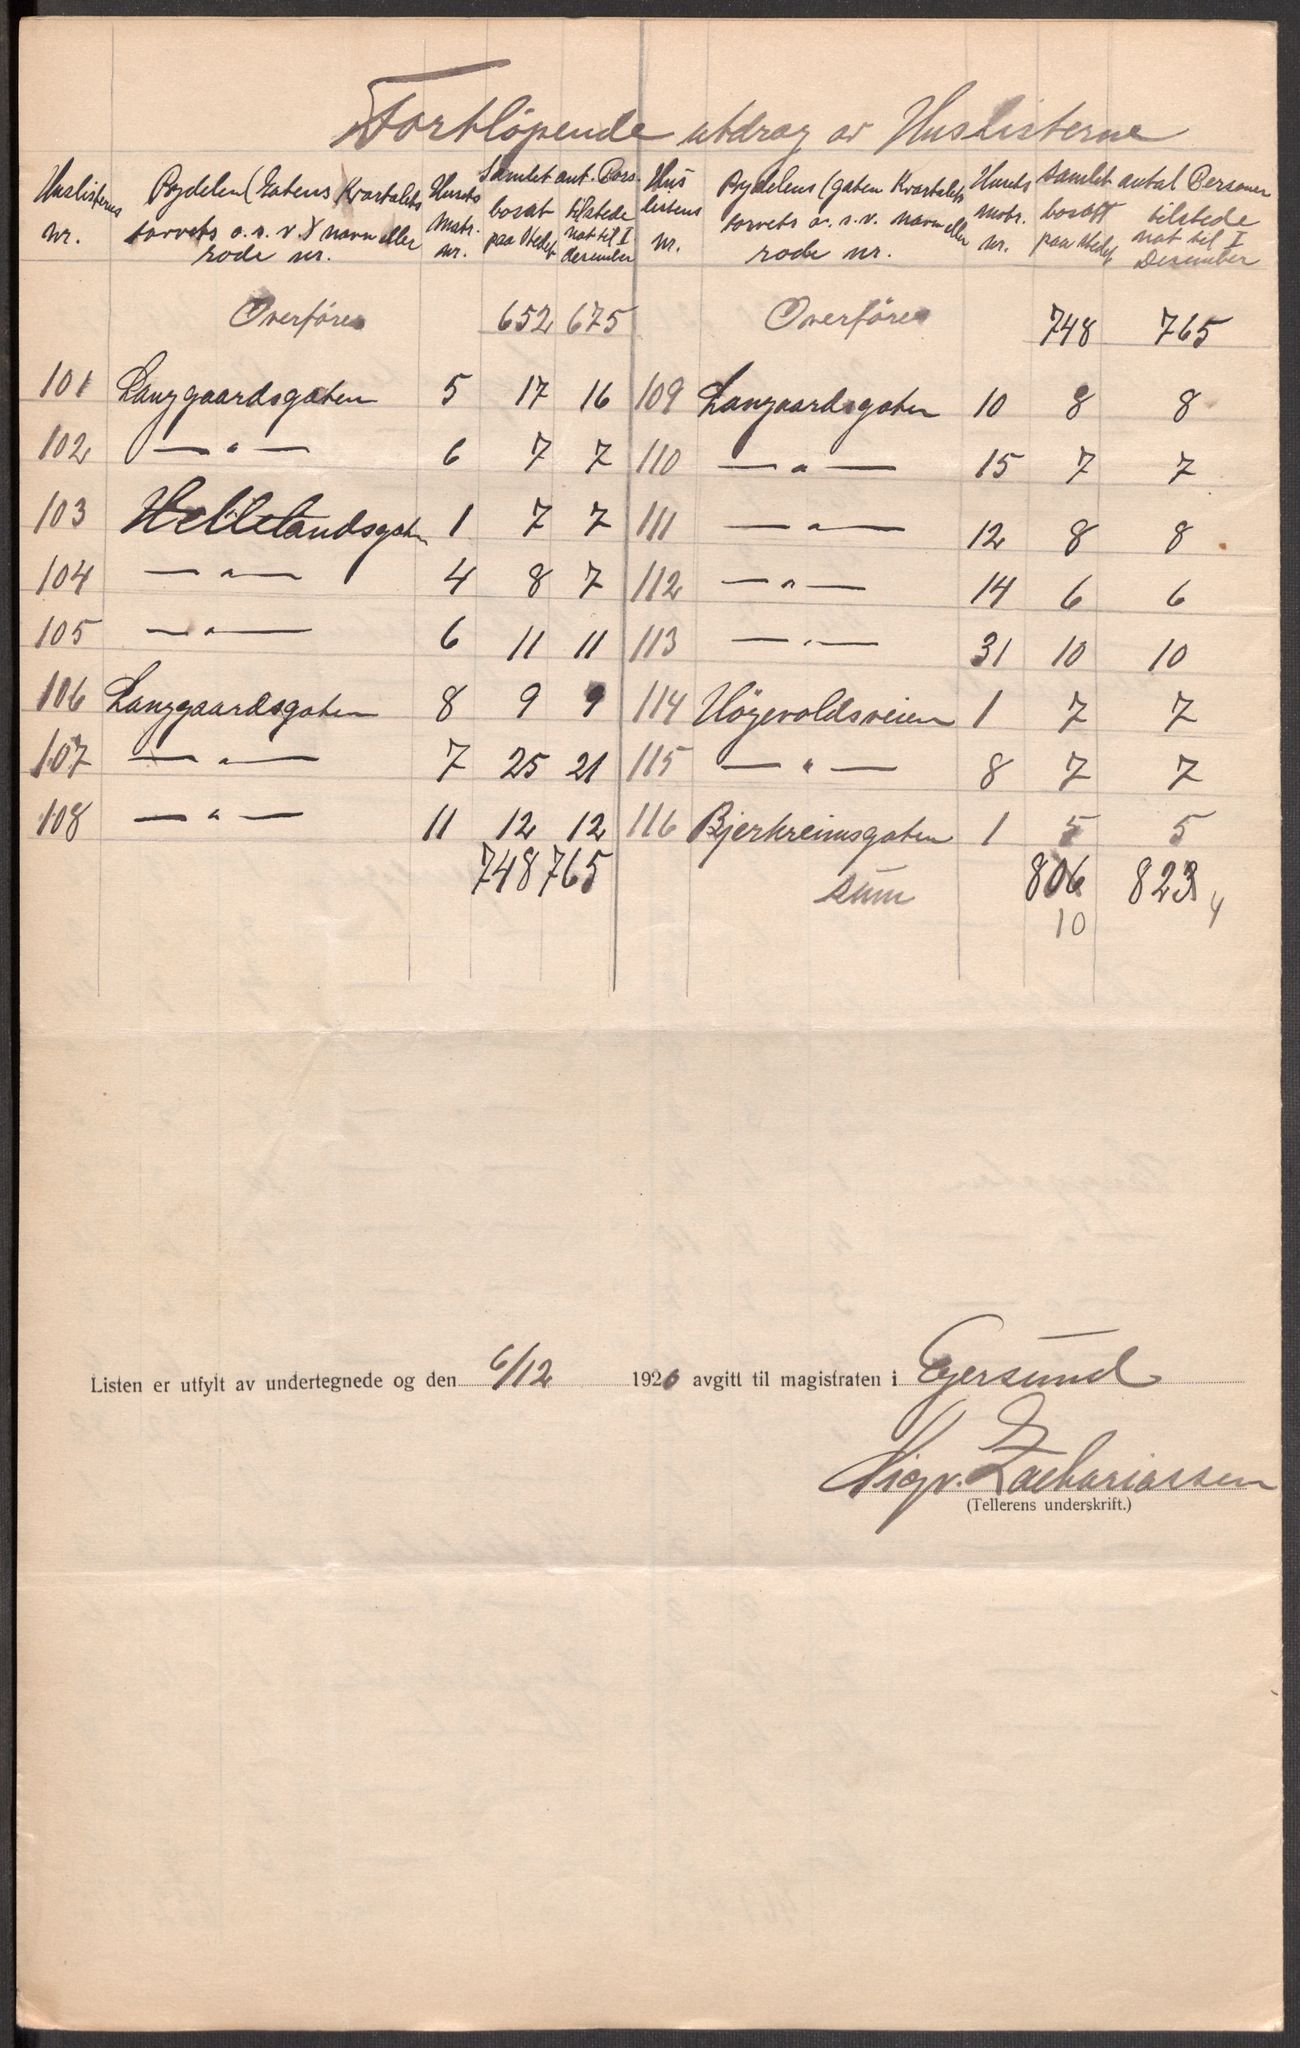 Fortløpende utdrag av Huslisterne
Huslisternes nr. | Bydelens (Gatens Kvartalets torvets o.s.v.) navn eller rode nr. | Husets matr. nr. | Samlet ant. Pers. bosat paa stedet | tilstede nat til 1 desember | Huslistens nr. | Bydelens (gaten Kvartalets torvets o.s.v. navn eller rode nr. | Husets matr. nr. | Samlet antal Personer bosatt paa stedet | tilstede nat til 1 Desember
Overføres 652 675 Overføres 748 765
101 Langgaardsgaten 5 17 16 109 Langaardsgaten 10 8 8
102 —"— 6 7 7 110 —"— 15 7 7
103 Hellelandsgaten 1 7 7 111 —"— 12 8 8
104 —"— 4 8 7 112 —"— 14 6 6
105 —"— 6 11 11 113 —"— 31 10 10
106 Langgaardsgaten 8 9 9 114 Høgevoldsveien 1 7 7
107 —"— 7 25 21 115 —"— 8 7 7
108 —"— 11 12 12 116 Bjerkreimsgaten 1 5 5
748 765 sum 806 823
10 4
Listen er utfylt av undertegnede og den 6/12 1920 avgitt til magistraten i Egersund
Sigv. Zachariassen
(Tellerens underskrift.)